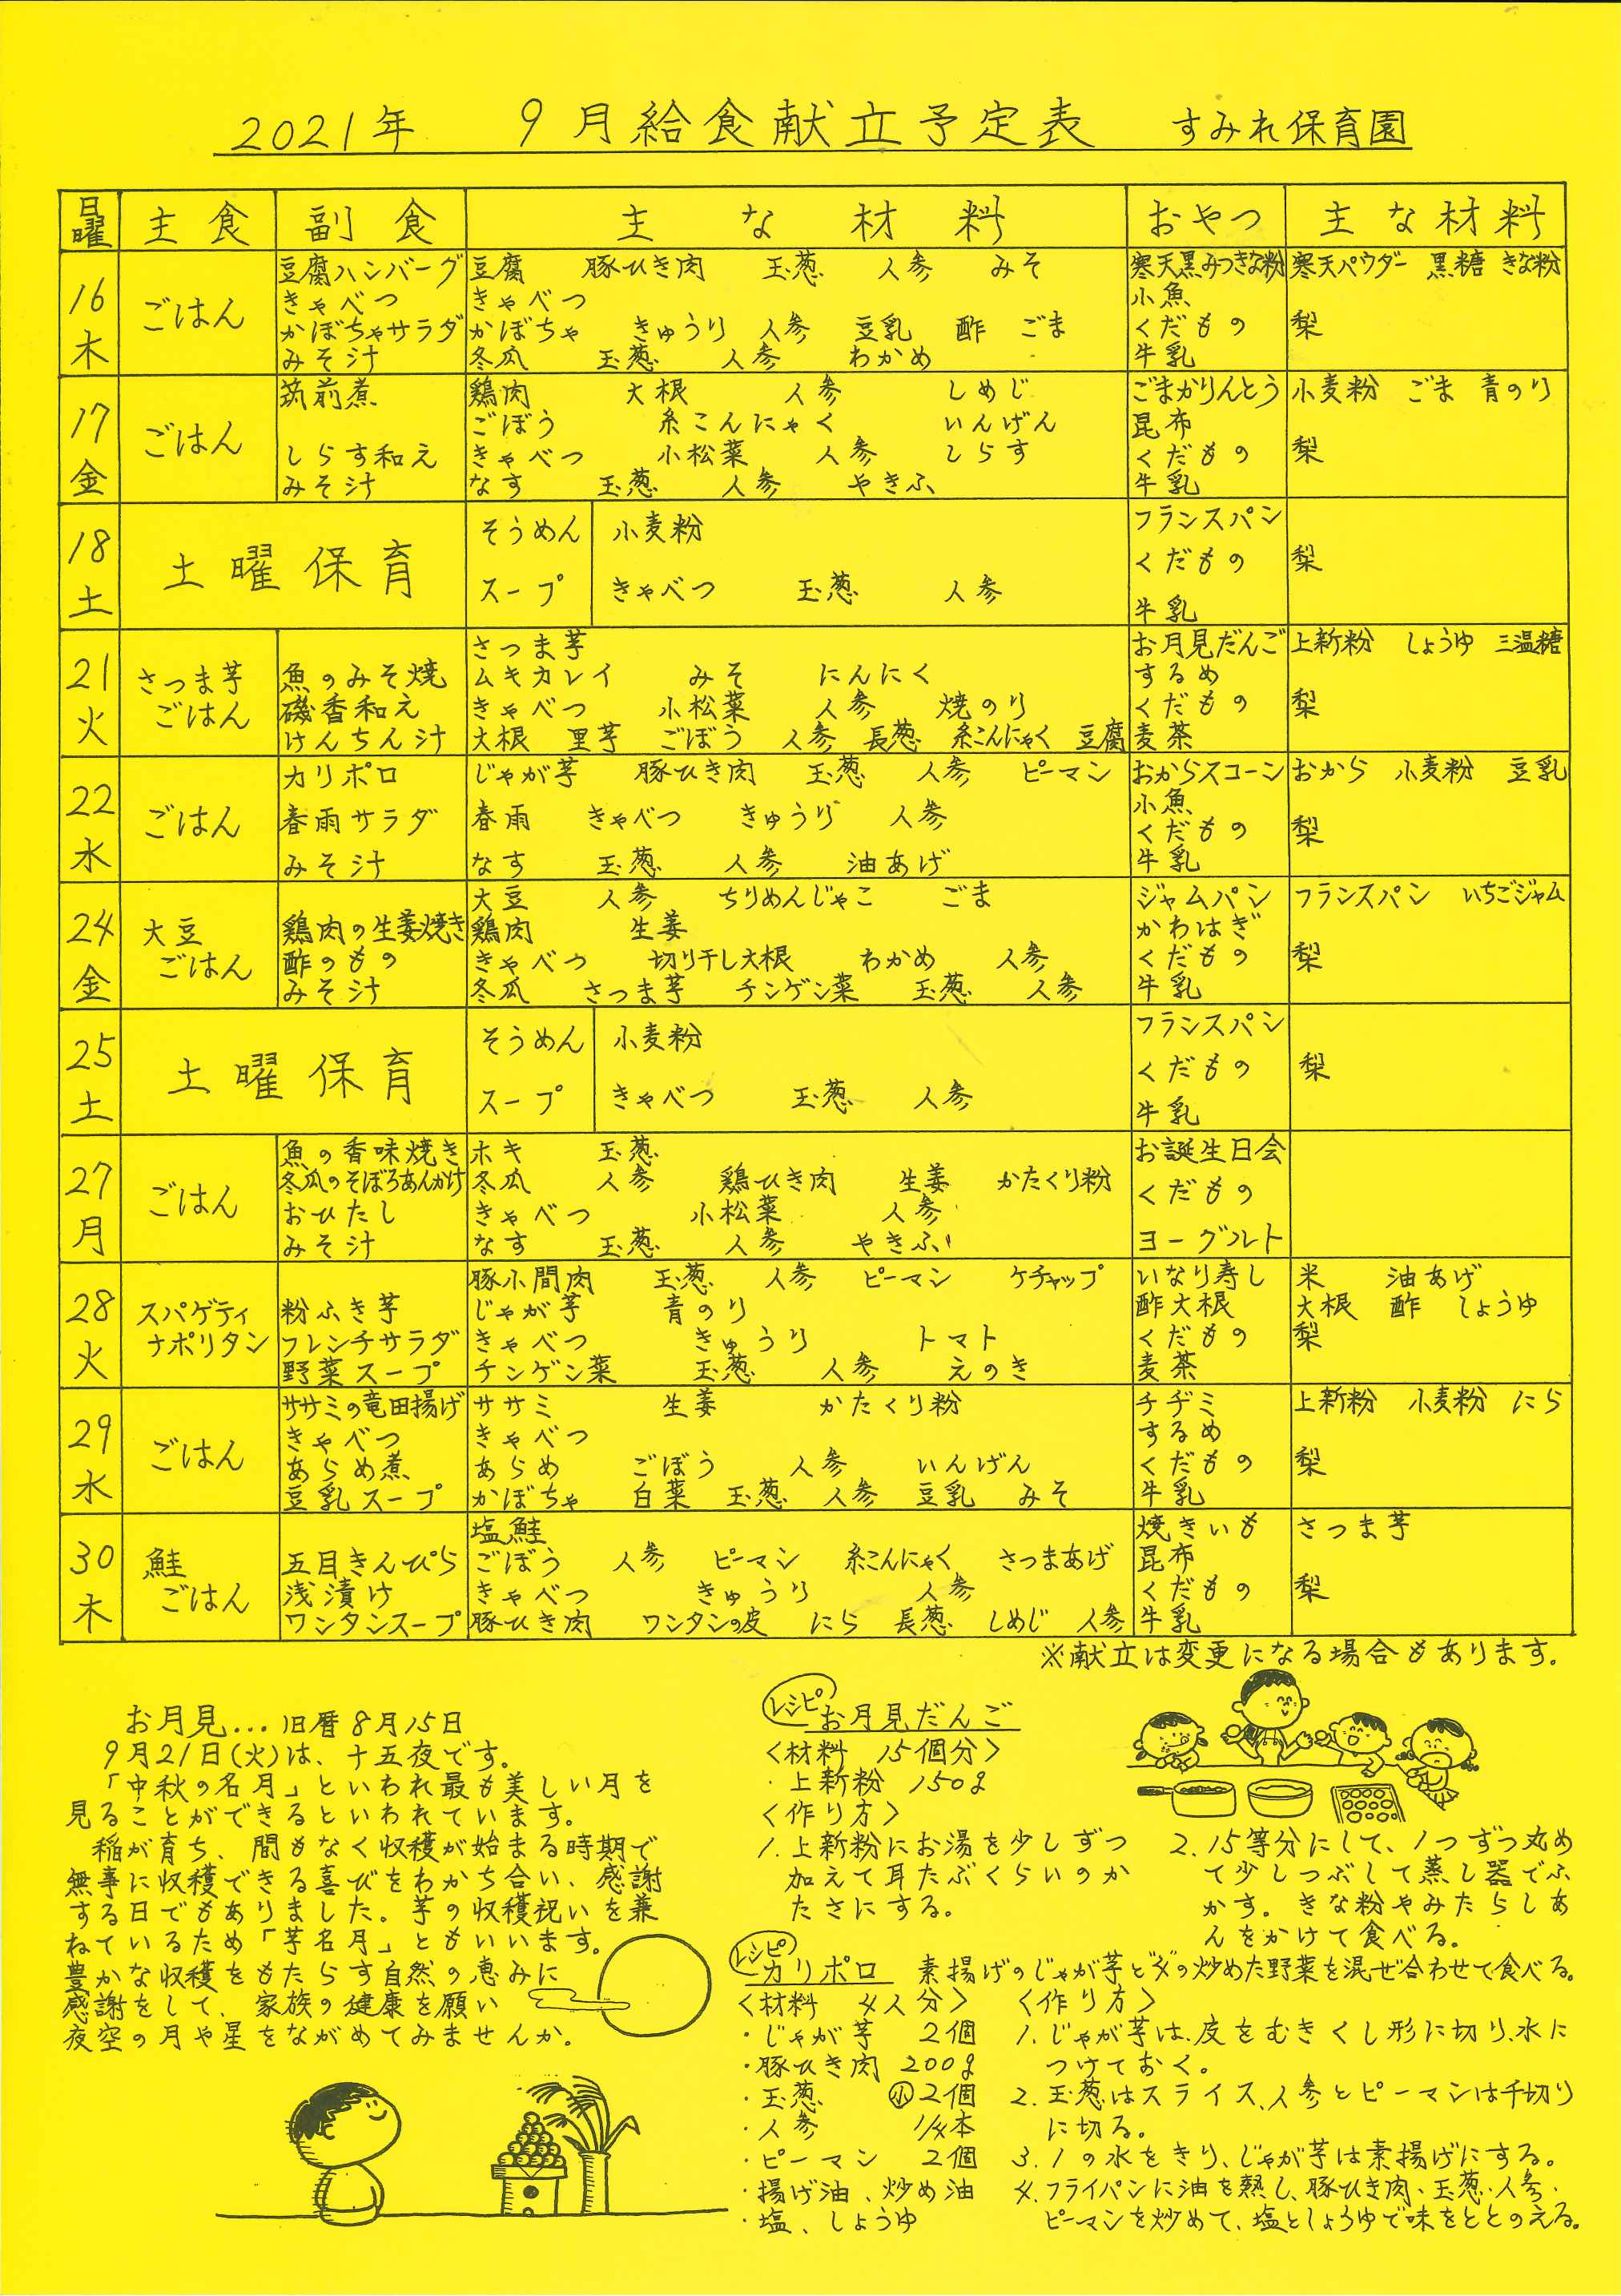 2021年 9月給食献立予定表 すみれ保育園
日曜 主食 副食 主な材料 おやつ 主な材料
16木 ごはん
豆腐ハンバーグ 豆腐 豚ひき肉 玉葱 人参 みそ 寒天黒みつきな粉 寒天パウダー 黒糖 きな粉
きゃべつ きゃべつ 小魚
かぼちゃサラダ かぼちゃ きゅうり 人参 豆乳 酢 ごま くだもの 梨
みそ汁 冬瓜 玉葱 人参 わかめ 牛乳
17金 ごはん
筑前煮 鶏肉 大根 人参 しめじ ごまかりんとう 小麦粉 ごま 青のり
ごぼう 糸こんにゃく いんげん 昆布
しらす和え きゃべつ 小松菜 人参 しらす くだもの 梨
みそ汁 なす 玉葱 人参 やきふ 牛乳
18土 土曜保育
そうめん 小麦粉 フランスパン
くだもの 梨
スープ きゃべつ 玉葱 人参 牛乳
21火 さつま芋ごはん
さつま芋 お月見だんご 上新粉 しょうゆ 三温糖
魚のみそ焼 ムキカレイ みそ にんにく するめ
磯香和え きゃべつ 小松菜 人参 焼のり くだもの 梨
けんちん汁 大根 里芋 ごぼう 人参 長葱 糸こんにゃく 豆腐 麦茶
22水 ごはん
カリポロ じゃが芋 豚ひき肉 玉葱 人参 ピーマン おからスコーン おから 小麦粉 豆乳
小魚
春雨サラダ 春雨 きゃべつ きゅうり 人参 くだもの 梨
みそ汁 なす 玉葱 人参 油あげ 牛乳
24金 大豆ごはん
大豆 人参 ちりめんじゃこ ごま ジャムパン フランスパン いちごジャム
鶏肉の生姜焼き 鶏肉 生姜 かわはぎ
酢のもの きゃべつ 切り干し大根 わかめ 人参 くだもの 梨
みそ汁 冬瓜 さつま芋 チンゲン菜 玉葱 人参 牛乳
25土 土曜保育
そうめん 小麦粉 フランスパン
くだもの 梨
スープ きゃべつ 玉葱 人参 牛乳
27月 ごはん
魚の香味焼き ホキ 玉葱 お誕生日会
冬瓜のそぼろあんかけ 冬瓜 人参 鶏ひき肉 生姜 かたくり粉 くだもの
おひたし きゃべつ 小松菜 人参
みそ汁 なす 玉葱 人参 やきふ ヨーグルト
28火 スパゲティナポリタン
豚小間肉 玉葱 人参 ピーマン ケチャップ いなり寿し 米 油あげ
粉ふき芋 じゃが芋 青のり 酢大根 大根 酢 しょうゆ
フレンチサラダ きゃべつ きゅうり トマト くだもの 梨
野菜スープ チンゲン菜 玉葱 人参 えのき 麦茶
29水 ごはん
ササミの竜田揚げ ササミ 生姜 かたくり粉 チヂミ 上新粉 小麦粉 にら
きゃべつ きゃべつ するめ
あらめ煮 あらめ ごぼう 人参 いんげん くだもの 梨
豆乳スープ かぼちゃ 白菜 玉葱 人参 豆乳 みそ 牛乳
30木 鮭ごはん
塩鮭 焼きいも さつま芋
五目きんぴら ごぼう 人参 ピーマン 糸こんにゃく さつまあげ 昆布
浅漬け きゃべつ きゅうり 人参 くだもの 梨
ワンタンスープ 豚ひき肉 ワンタンの皮 にら 長葱 しめじ 人参 牛乳
※献立は変更になる場合もあります。
お月見…旧暦8月15日
9月21日(火)は、十五夜です。
「中秋の名月」といわれ最も美しい月を
見ることができるといわれています。
稲が育ち、間もなく収穫が始まる時期で
無事に収穫できる喜びをわかち合い、感謝
する日でもありました。芋の収穫祝いを兼
ねているため「芋名月」ともいいます。
豊かな収穫をもたらす自然の恵みに
感謝をして、家族の健康を願い
夜空の月や星をながめてみませんか。
レシピ お月見だんご
〈材料 15個分〉
・上新粉 150g
〈作り方〉
1.上新粉にお湯を少しずつ
加えて耳たぶくらいのか
たさにする。
2.15等分にして、1つずつ丸め
て少しつぶして蒸し器でふ
かす。きな粉やみたらしあ
んをかけて食べる。
レシピ カリポロ 素揚げのじゃが芋と〆の炒めた野菜を混ぜ合わせて食べる。
〈材料 4人分〉
・じゃが芋 2個
・豚ひき肉 200g
・玉葱 小2個
・人参 1/4本
・ピーマン 2個
・揚げ油、炒め油
・塩、しょうゆ
〈作り方〉
1.じゃが芋は、皮をむきくし形に切り、水に
つけておく。
2.玉葱はスライス、人参とピーマンは千切り
に切る。
3.1の水をきり、じゃが芋は素揚げにする。
4.フライパンに油を熱し、豚ひき肉、玉葱、人参、
ピーマンを炒めて、塩としょうゆで味をととのえる。